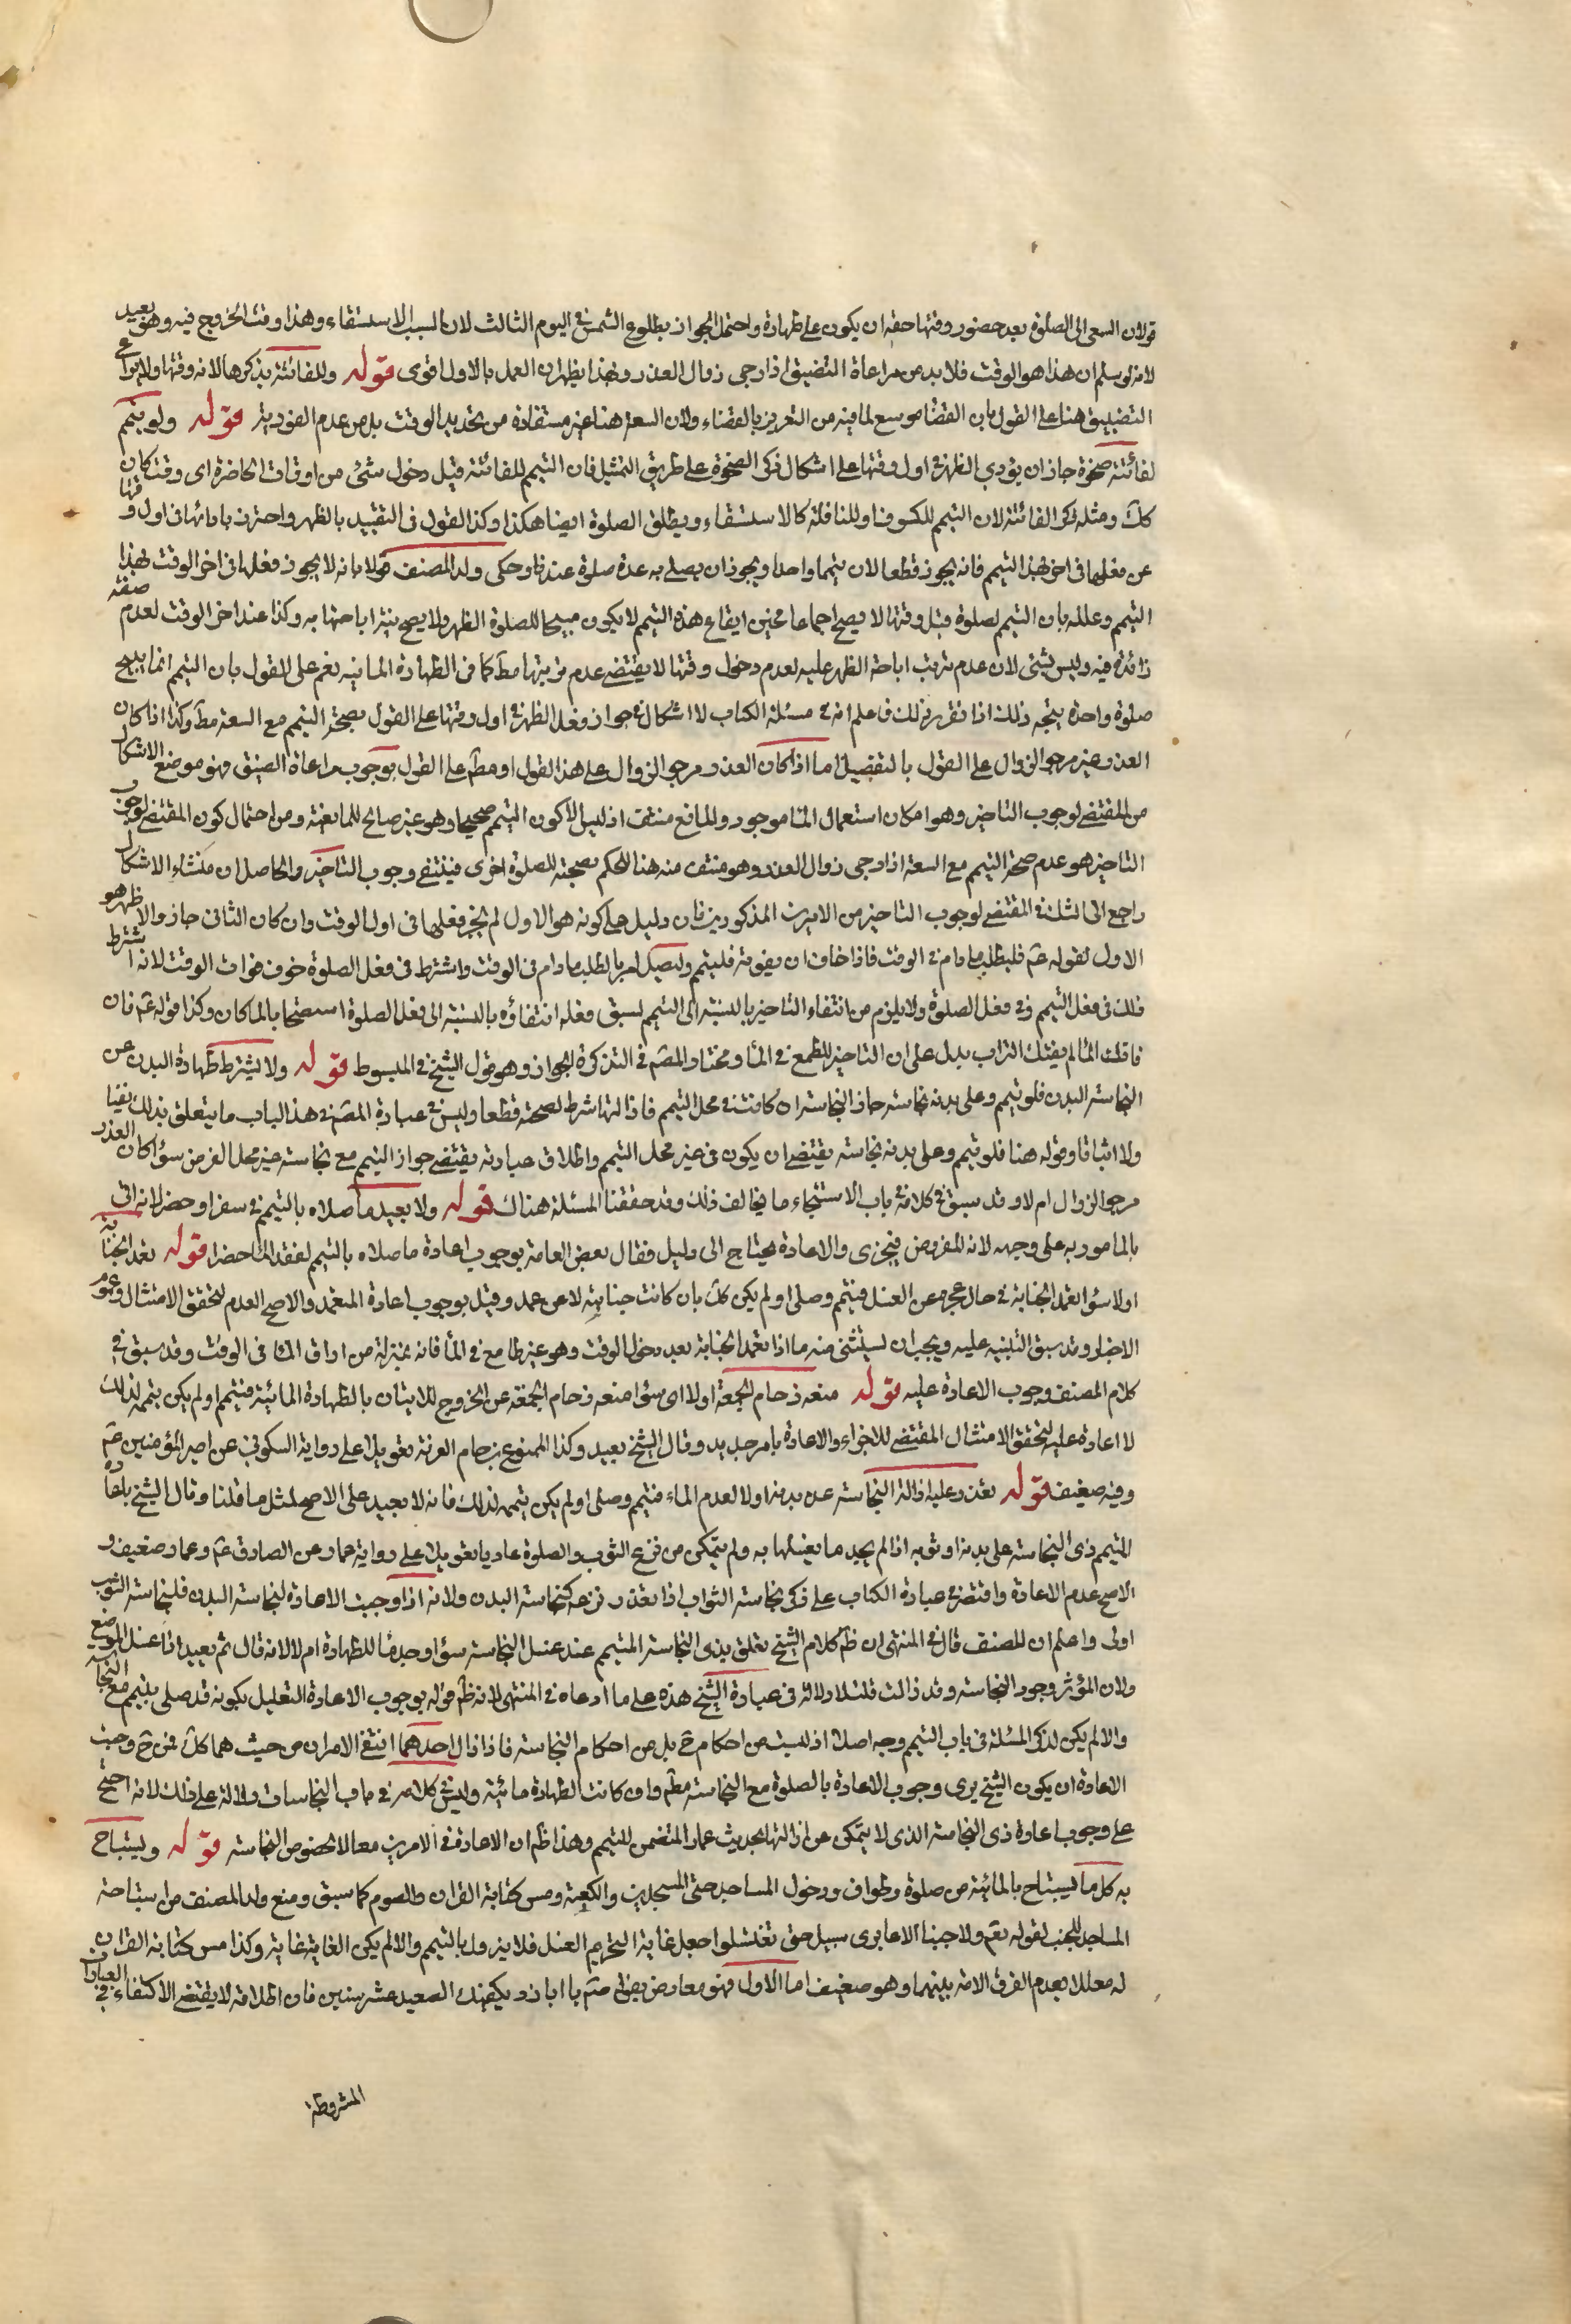 قولان السعى الى الصلوة بعد حضور وقتها حقه ان يكون على طهارة واحتمل الجواز بطلوع الشمس فى اليوم الثالث لان السبب الاستسقاء وهذا وقت الخروج فيه وهو بعيد
لانه لو سلم ان هذا هو الوقت فلا بد من مراعاة التضيق اذا رجى زوال العذر وبهذا يظهر ان العمل بالاول اقوى قوله وللفائتة بذكرها لانه وقتها ولا يراعى
التضيق هنا على القول بان القضا موسع لما فيه من التغرير بالقضاء ولان السعة هنا غير مستفادة من تحديد الوقت بل من عدم الفورية قوله ولو تيمم
لفائتة ضحوة جاز ان يؤدي الظهر فى اول وقتها على اشكال ذكر الضحوة على طريق التمثيل فان التيمم للفائتة قبل دخول شئ من اوقات الحاضرة اى وقت كان
كك ومثله ذكر الفائتة لان التيمم للكسوف او للنافلة كالاستسقاء ويطلق الصلوة ايضا هكذا وكذا القول فى التقييد بالظهر واحترز بادائها فى اول وقتها
عن فعلها فى اخره بهذا التيمم فانه يجوز قطعا لان تيمما واحدا ويجوز ان يصلى به عدة صلوة عندنا وحكى ولد المصنف قولا بانه لا يجوز فعلها فى اخر الوقت بهذا
التيمم وعلله بان التيمم لصلوة قبل وقتها لا يصح اجماعا فحين ايقاع هذا التيمم لا يكون مبيحا للصلوة الظهر ولا يصح نية اباحتها به وكذا عند اخر الوقت لعدم صفة
زائدة فيه وليس بشئ لان عدم ترتب اباحة الظهر عليه لعدم دخول وقتها لا يقتضى عدم ترتبها مط كما فى الطهارة المائيه نعم على القول بان التيمم انما يبيح
صلوة واحدة يتجه ذلك اذا تقرر ذلك فاعلم انه فى مسئلة الكتاب لا اشكال فى جواز فعل الظهر فى اول وقتها على القول بصحة التيمم مع السعة مط وكذا اذا كان
العذر غير مرجو الزوال على القول بالتفصيل اما اذا كان العذر مرجو الزوال على هذا القول او مط على القول بوجوب مراعاة الضيق فهو موضع الاشكال
من المقتضى لوجوب التاخير وهو امكان استعمال الماء موجود والمانع منتف اذ ليس الا كون التيمم صحيحا وهو غير صالح للمانعية ومن احتمال كون المقتضى لوجوب
التاخير هو عدم صحة التيمم مع السعة اذا رجى زوال العذر وهو منتف منه هنا للحكم بصحته للصلوة اخرى فينتفى وجوب التاخير والحاصل ان منشاء الاشكال
راجع الى الشك فى المقتضى لوجوب التاخير من الامرين المذكورين فان دليل على كونه هو الاول لم يجز فعلها فى اول الوقت وان كان الثانى جاز والاظهر هو
الاول لقوله عم فليطلب ما دام فى الوقت فاذا خاف ان يفوته فليتيمم وليصل امر بالطلب ما دام فى الوقت واشترط فى فعل الصلوة خوف فوات الوقت لانه اشترط
ذلك فى فعل التيمم وفى فعل الصلوة ولا يلزم من انتفاء التاخير بالنسبة الى التيمم لسبق فعله انتفاؤه بالنسبة الى فعل الصلوة استصحابا لما كان وكذا قوله عم فان
فاتك الماء لم يفتك التراب يدل على ان التاخير للطمع فى الماء ومختار المصم فى التذكرة الجواز وهو قول الشيخ فى المبسوط قوله ولا يشترط طهارة البدن عن
النجاسة البدن فلو تيمم وعلى بدنه نجاسة جاز النجاسة ان كانت فى محل التيمم فازالتها شرط لصحته قطعا وليس فى عبارة المصم فى هذا الباب ما يتعلق بذلك نفيا
ولا اثباتا وقوله هنا فلو تيمم وعلى بدنه نجاسة يقتضى ان يكون فى غير محل التيمم واطلاق عبارته يقتضى جواز التيمم مع نجاسة غير محل الفرض سواء كان العذر
مرجو الزوال ام لا وقد سبق فى كلامه فى باب الاستنجاء ما يخالف ذلك وقد حققنا المسئلة هناك قوله ولا يعيد ما صلاه بالتيمم فى سفر او حضر لانه اتى
بالمامور به على وجهه لانه المفروض فيجزى والاعادة يحتاج الى دليل فقال بعض العامة بوجوب اعادة ما صلاه بالتيمم لفقد الماء حضرا قوله تعمد الجنابة
اولا سواء تعمد الجنابة فى حال عجزه عن الغسل فتيمم وصلى او لم يكن كك بان كانت جنابته لا عن عمد وقيل بوجوب اعادة المتعمد والاصح العدم لتحقق الامتثال وعموم
الاخبار وقد سبق التنبيه عليه ويجب ان يستثنى منه ما اذا تعمد الجنابة بعد دخول الوقت وهو غير طامع فى الماء فانه بمنزلة من اراق الماء فى الوقت وقد سبق فى
كلام المصنف وجوب الاعادة عليه قوله منعه زحام الجمعة اولا اى سواء منعه زحام الجمعة عن الخروج للاتيان بالطهارة المائية فتيمم او لم يكن تيممه لذلك
لا اعادة عليه لتحقق الامتثال المقتضى للاجزاء والاعادة بامر جديد وقال الشيخ يعيد وكذا الممنوع بزحام العرفة تعويلا على رواية السكونى عن امير المؤمنين عم
وفيه ضعيف قوله تعذر عليه ازالة النجاسة عن بدنه اولا لعدم الماء فتيمم وصلى او لم يكن تيممه لذلك فانه لا يعيد على الاصح لمثل ما قلنا وقال الشيخ باعادة
المتيمم ذى النجاسة على بدنه او ثوبه اذا لم يجد ما يغسلها به ولم يتمكن من نزع الثوب والصلوة عاريا تعويلا على رواية عمار عن الصادق عم وعمار ضعيف و
الاصح عدم الاعادة واقتصر فى عبارة الكتاب على ذكر نجاسة الثواب اذا تعذر نزعه كنجاسة البدن ولانه اذا وجبت الاعادة لنجاسة البدن فلنجاسة الثوب
اولى واعلم ان المصنف قال فى المنتهى ان ظ كلام الشيخ تعلق بذى النجاسة المتيمم عند غسل النجاسة سواء وجد ماء للطهارة ام لا لانه قال ثم يعيد اذا غسل الموضع
ولان المؤثر وجود النجاسة وقد زالت قلت لا دلالة فى عبارة الشيخ هذه على ما ادعاه فى المنتهى لانه ظ قوله بوجوب الاعادة التعليل بكونه قد صلى بتيمم مع النجاسة
والا لم يكن لذكر المسئلة فى باب التيمم وجه اصلا اذ ليست من احكام ح بل من احكام النجاسة فاذا زال احدهما انتفى الامران من حيث هما كك فمن ح وجبت
الاعادة ان يكون الشيخ يرى وجوب الاعادة بالصلوة مع النجاسة مط وان كانت الطهارة مائية وليس فى كلامه فى باب النجاسات دلالة على ذلك لانه احتج
على وجوب اعادة ذى النجاسة الذى لا يتمكن من ازالتها بحديث عمار المتضمن للتيمم وهذا ظ ان الاعادة فى الامرين معا لا لخصوص النجاسة قوله ويستباح
به كل ما يستباح بالمائية من صلوة وطواف ودخول المساجد حتى المسجدين والكعبة ومس كتابة القران والصوم كما سبق ومنع ولد المصنف من استباحة
المساجد للجنب لقوله تعم ولا جنبا الا عابرى سبيل حتى تغتسلوا جعل غاية التحريم الغسل فلا يزول بالتيمم والا لم يكن الغاية غاية وكذا مس كتابة القران
له معللا بعدم الفرق الامة بينهما وهو ضعيف اما الاول فهو معارض بقوله صم يا ابا ذر يكفيك الصعيد عشر سنين فان اطلاقه لا يقتضى الاكتفاء فى العبادات
المشروطة